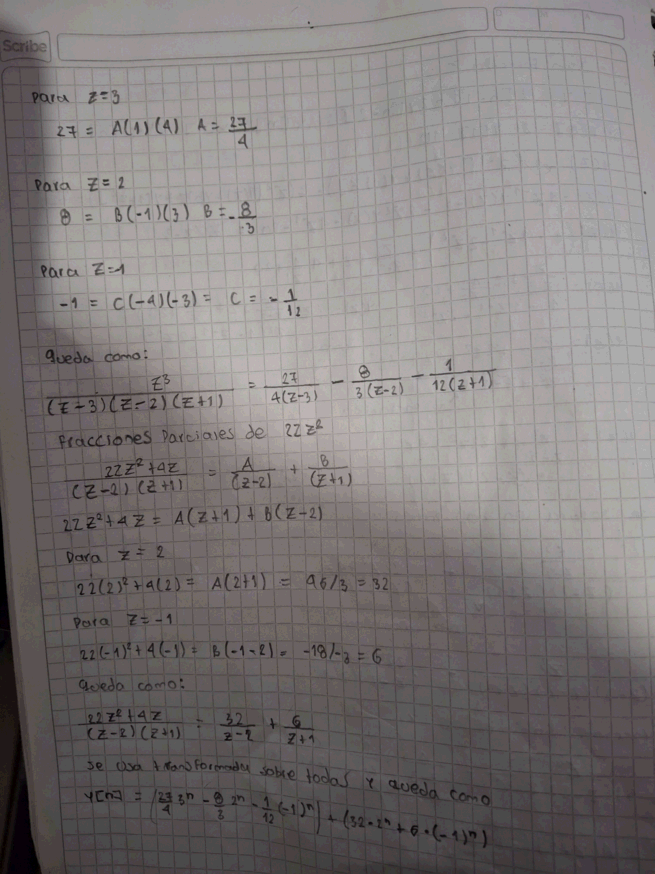 Scribe
Para z=3
27 = A(1)(4) A = 27/4
Para z = 2
8 = B(-1)(3) B = -8/-3
Para z=-1
-1 = C(-4)(-3) = C = -1/12
queda como:
z³/((z-3)(z-2)(z+1)) = 27/(4(z-3)) - 8/(3(z-2)) - 1/(12(z+1))
fracciones parciales de 22z²
(22z²+4z)/((z-2)(z+1)) = A/(z-2) + B/(z+1)
22z²+4z = A(z+1) + B(z-2)
Para z = 2
22(2)²+4(2) = A(2+1) = 96/3 = 32
Para z = -1
22(-1)²+4(-1) = B(-1-2) = -18/-3 = 6
queda como:
(22z²+4z)/((z-2)(z+1)) = 32/(z-2) + 6/(z+1)
se usa transformada sobre todas y queda como
Y[n] = (27/4 3ⁿ - 8/3 2ⁿ - 1/12 (-1)ⁿ) + (32·2ⁿ + 6·(-1)ⁿ)